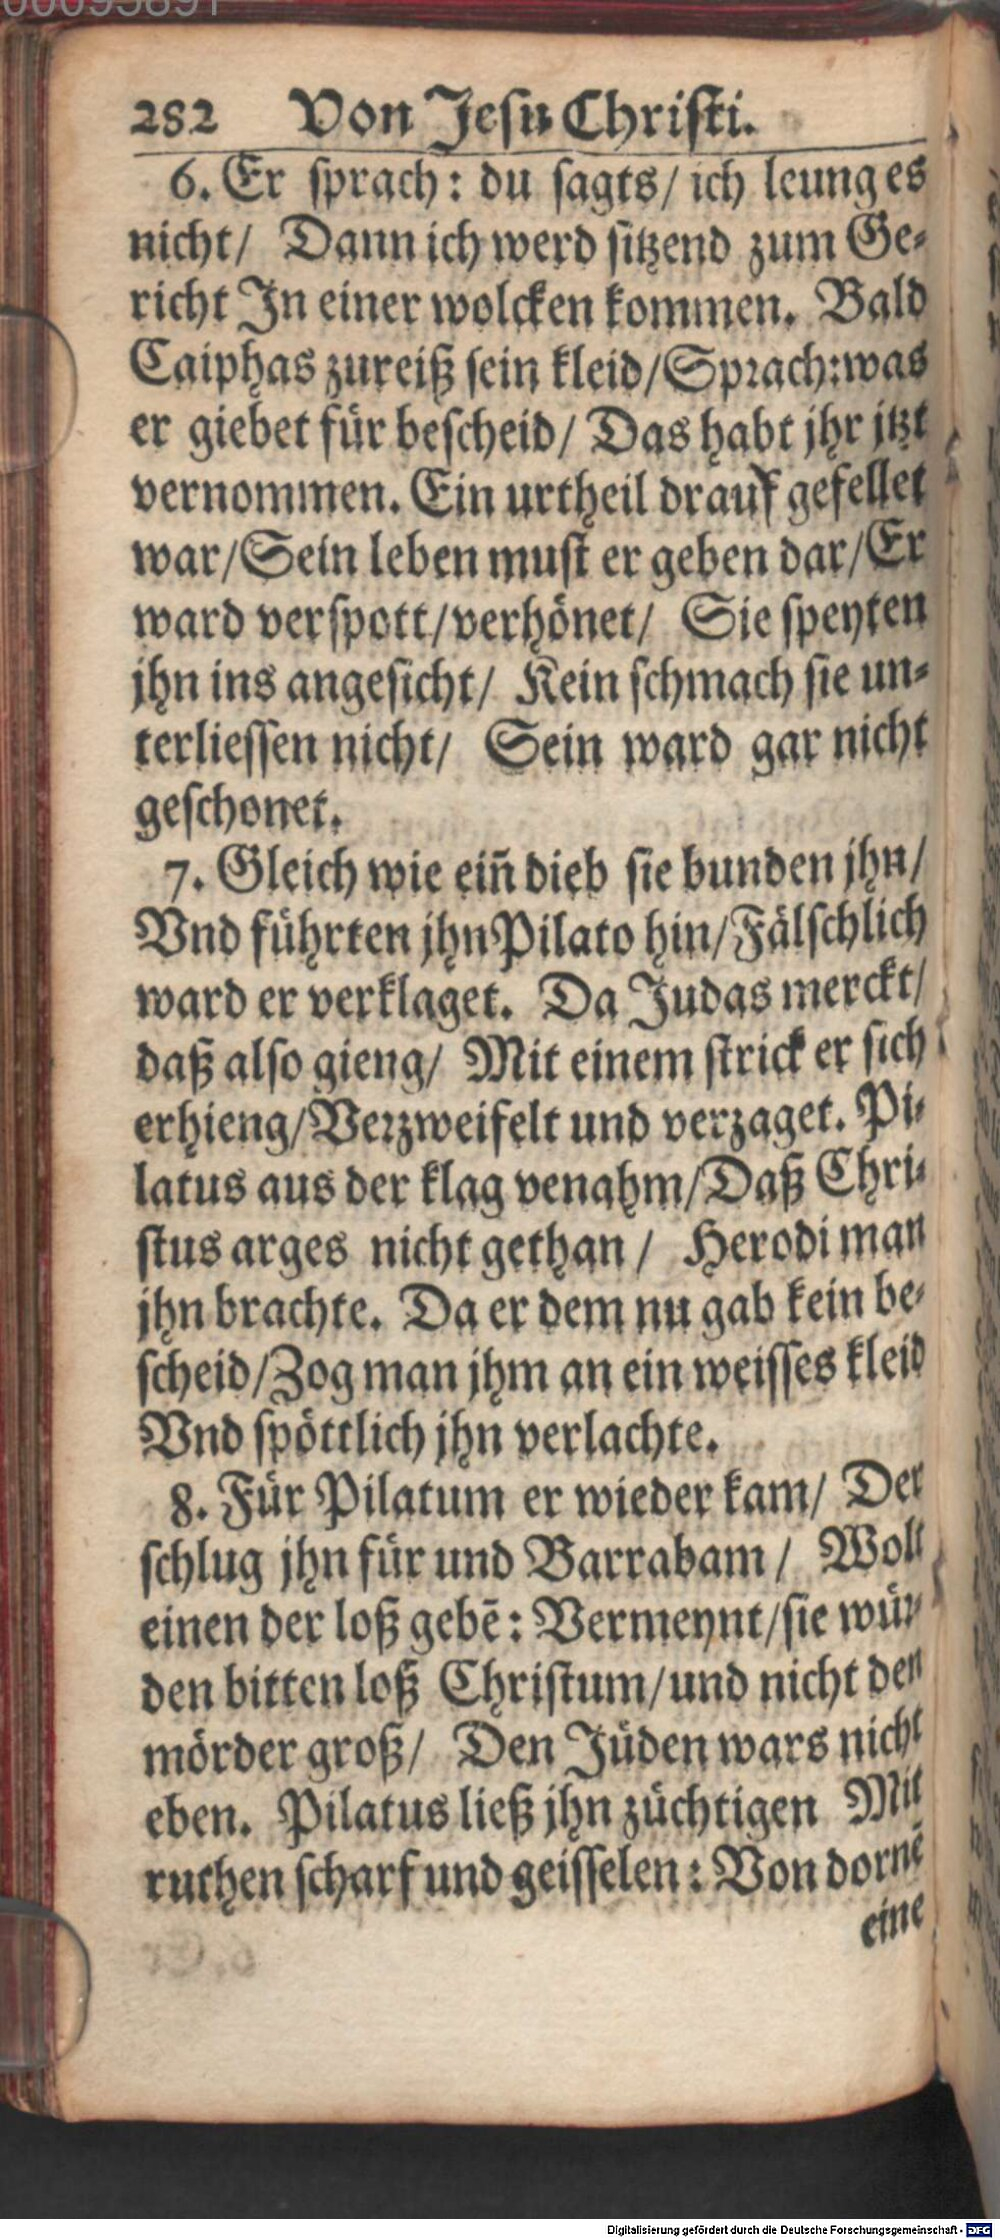 00095891
282 Von Jesu Christi.
6. Er sprach: du sagts/ ich leung es
nicht/ Dann ich werd sitzend zum Ge-
richt In einer wolcken kommen. Bald
Caiphas zureiß sein kleid/Sprach:was
er giebet für bescheid/ Das habt jhr jtzt
vernommen. Ein urtheil drauf gefellet
war/Sein leben must er geben dar/Er
ward verspott/verhönet/ Sie speyten
jhn ins angesicht/ Kein schmach sie un-
terliessen nicht/ Sein ward gar nicht
geschonet.
7. Gleich wie eiñ dieb sie bunden jhn/
Vnd führten jhn Pilato hin/Fälschlich
ward er verklaget. Da Judas merckt/
daß also gieng/ Mit einem strick er sich
erhieng/Verzweifelt und verzaget. Pi-
latus aus der klag venahm/Daß Chri-
stus arges nicht gethan/ Herodi man
jhn brachte. Da er dem nu gab kein be-
scheid/Zog man jhm an ein weisses kleid
Vnd spöttlich jhn verlachte.
8. Für Pilatum er wieder kam/ Der
schlug jhn für und Barrabam/ Wolt
einen der loß gebē: Vermeynt/sie wür-
den bitten loß Christum/und nicht den
mörder groß/ Den Jüden wars nicht
eben. Pilatus ließ jhn züchtigen Mit
ruthen scharf und geisselen: Von dornē
eine
Digitalisierung gefördert durch die Deutsche Forschungsgemeinschaft - DFG